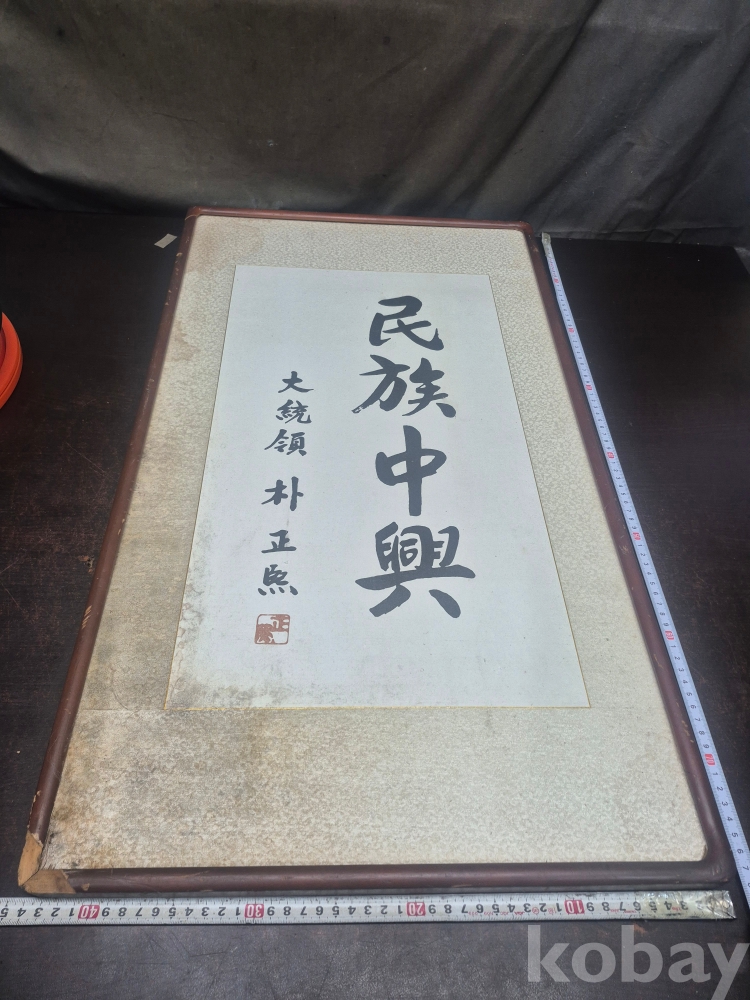 民族中興
大統領 朴正熙
正熙
kobay